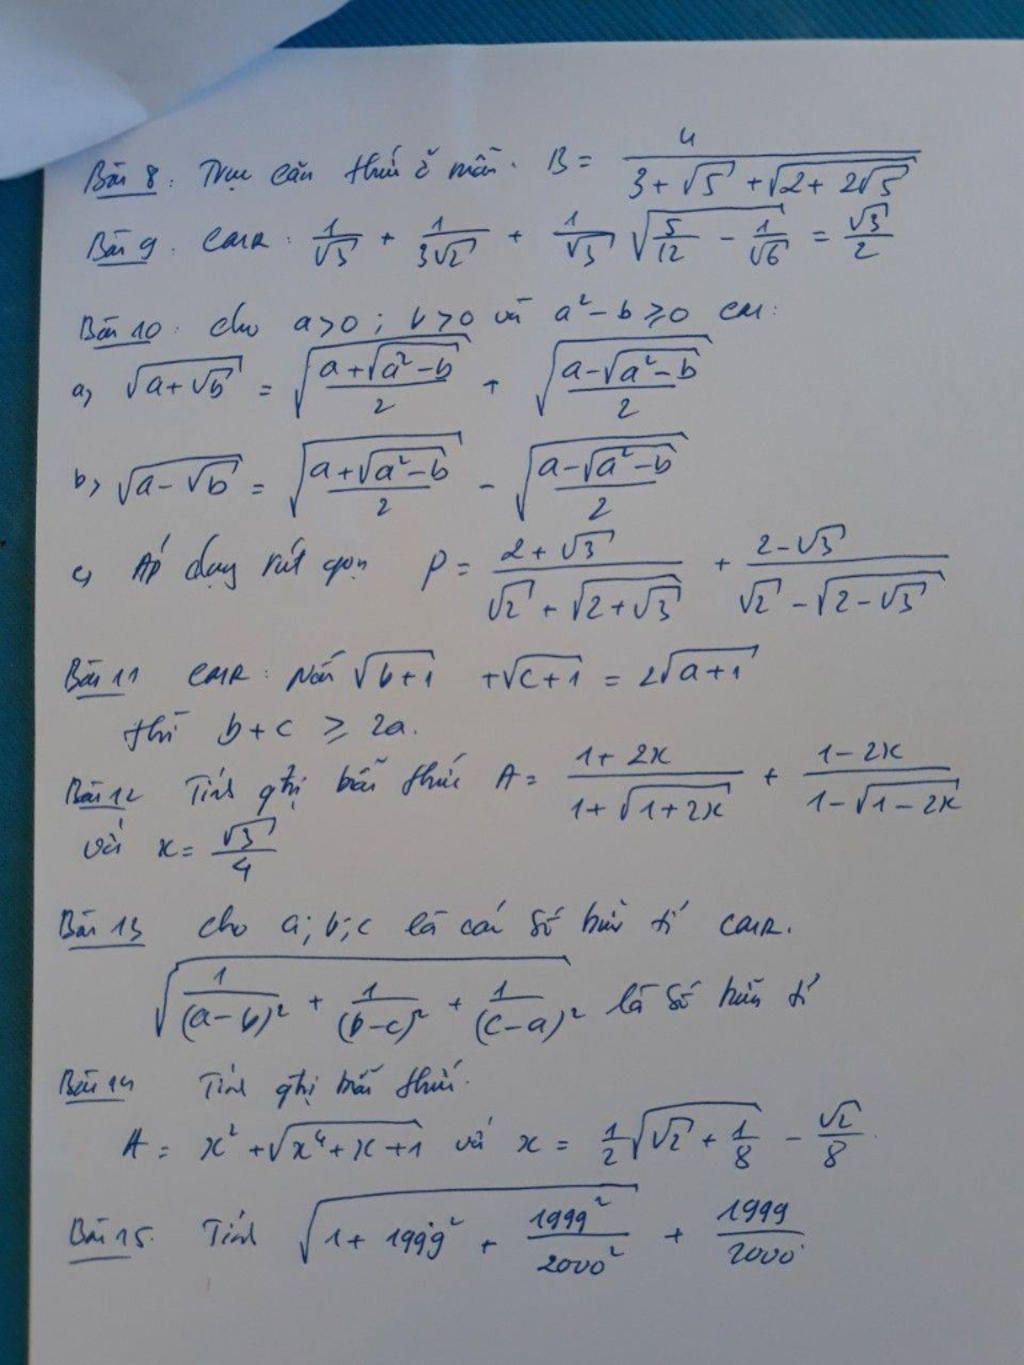 Bài 8. Trục căn thức ở mẫu. B = 4 / (3 + √5 + √(2 + 2√5))
Bài 9. CMR: 1/√3 + 1/(3√2) + 1/√3 √(5/12 - 1/√6) = √3/2
Bài 10: cho a>0; b>0 và a² - b ≥ 0 CM:
a, √(a + √b) = √((a + √(a² - b))/2) + √((a - √(a² - b))/2)
b, √(a - √b) = √((a + √(a² - b))/2) - √((a - √(a² - b))/2)
c, Áp dụng rút gọn P = (2 + √3)/(√2 + √(2 + √3)) + (2 - √3)/(√2 - √(2 - √3))
Bài 11 CMR: Nếu √(b+1) + √(c+1) = 2√(a+1)
thì b + c ≥ 2a.
Bài 12 Tính gtrị biểu thức A = (1 + 2x)/(1 + √(1 + 2x)) + (1 - 2x)/(1 - √(1 - 2x))
với x = √3/4
Bài 13 cho a; b; c là các số hữu tỉ CMR.
√(1/(a-b)² + 1/(b-c)² + 1/(c-a)²) là số hữu tỉ
Bài 14 Tính gtrị biểu thức.
A = x² + √(x⁴ + x + 1) với x = 1/2 √(√2 + 1/8) - √2/8.
Bài 15. Tính √(1 + 1999² + 1999²/2000²) + 1999/2000